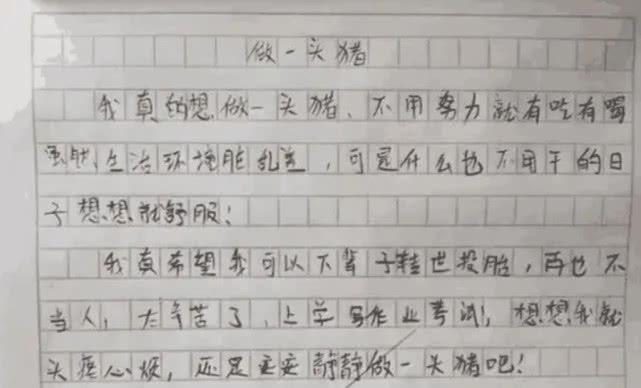 做一头猪
我真的想做一头猪、不用努力就有吃有喝
虽然生活环境脏乱差,可是什么也不用干的日
子想想就舒服!
我真希望我可以下辈子转世投胎,再也不
当人,太辛苦了,上学写作业考试!想想我就
头疼心烦,还是安安静静做一头猪吧!